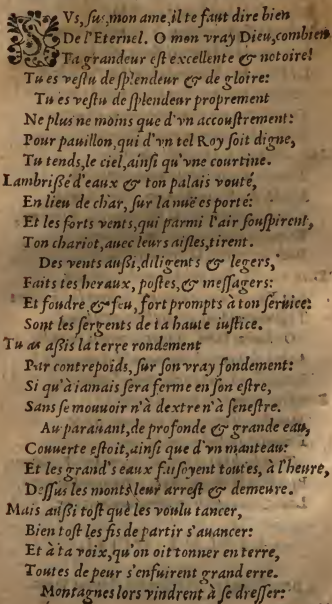 SVs, sus, mon ame, il te faut dire bien
De l'Eternel. O mon vray Dieu, combien
Ta grandeur est excellente & notoire!
Tu es vestu de splendeur & de gloire:
Tu es vestu de splendeur proprement
Ne plus ne moins que d'vn accoustrement:
Pour pauillon, qui d'vn tel Roy soit digne,
Tu tends, le ciel, ainsi qu'vne courtine.
Lambrißé d'eaux & ton palais vouté,
En lieu de char, sur la nuë es porté:
Et les forts vents, qui parmi l'air souspirent,
Ton chariot, auec leurs aisles, tirent.
Des vents außi, diligents & legers,
Faits tes heraux, postes, & messagers:
Et foudre, & feu, fort prompts à ton seruice:
Sont les sergents de ta haute iustice.
Tu as aßis la terre rondement
Par contrepoids, sur son vray fondement:
Si qu'à iamais sera ferme en son estre,
Sans se mouuoir n'à dextre n'à senestre.
Au-parauant, de profonde & grande eau,
Couuerte estoit, ainsi que d'vn manteau:
Et les grand's eaux faisoyent toutes, à l'heure,
Dessus les monts leur arrest & demeure.
Mais außi tost que les voulu tancer,
Bien tost les fis de partir s'auancer:
Et à ta voix, qu'on oit tonner en terre,
Toutes de peur s'enfuirent grand erre.
Montagnes lors vindrent à se dresser: